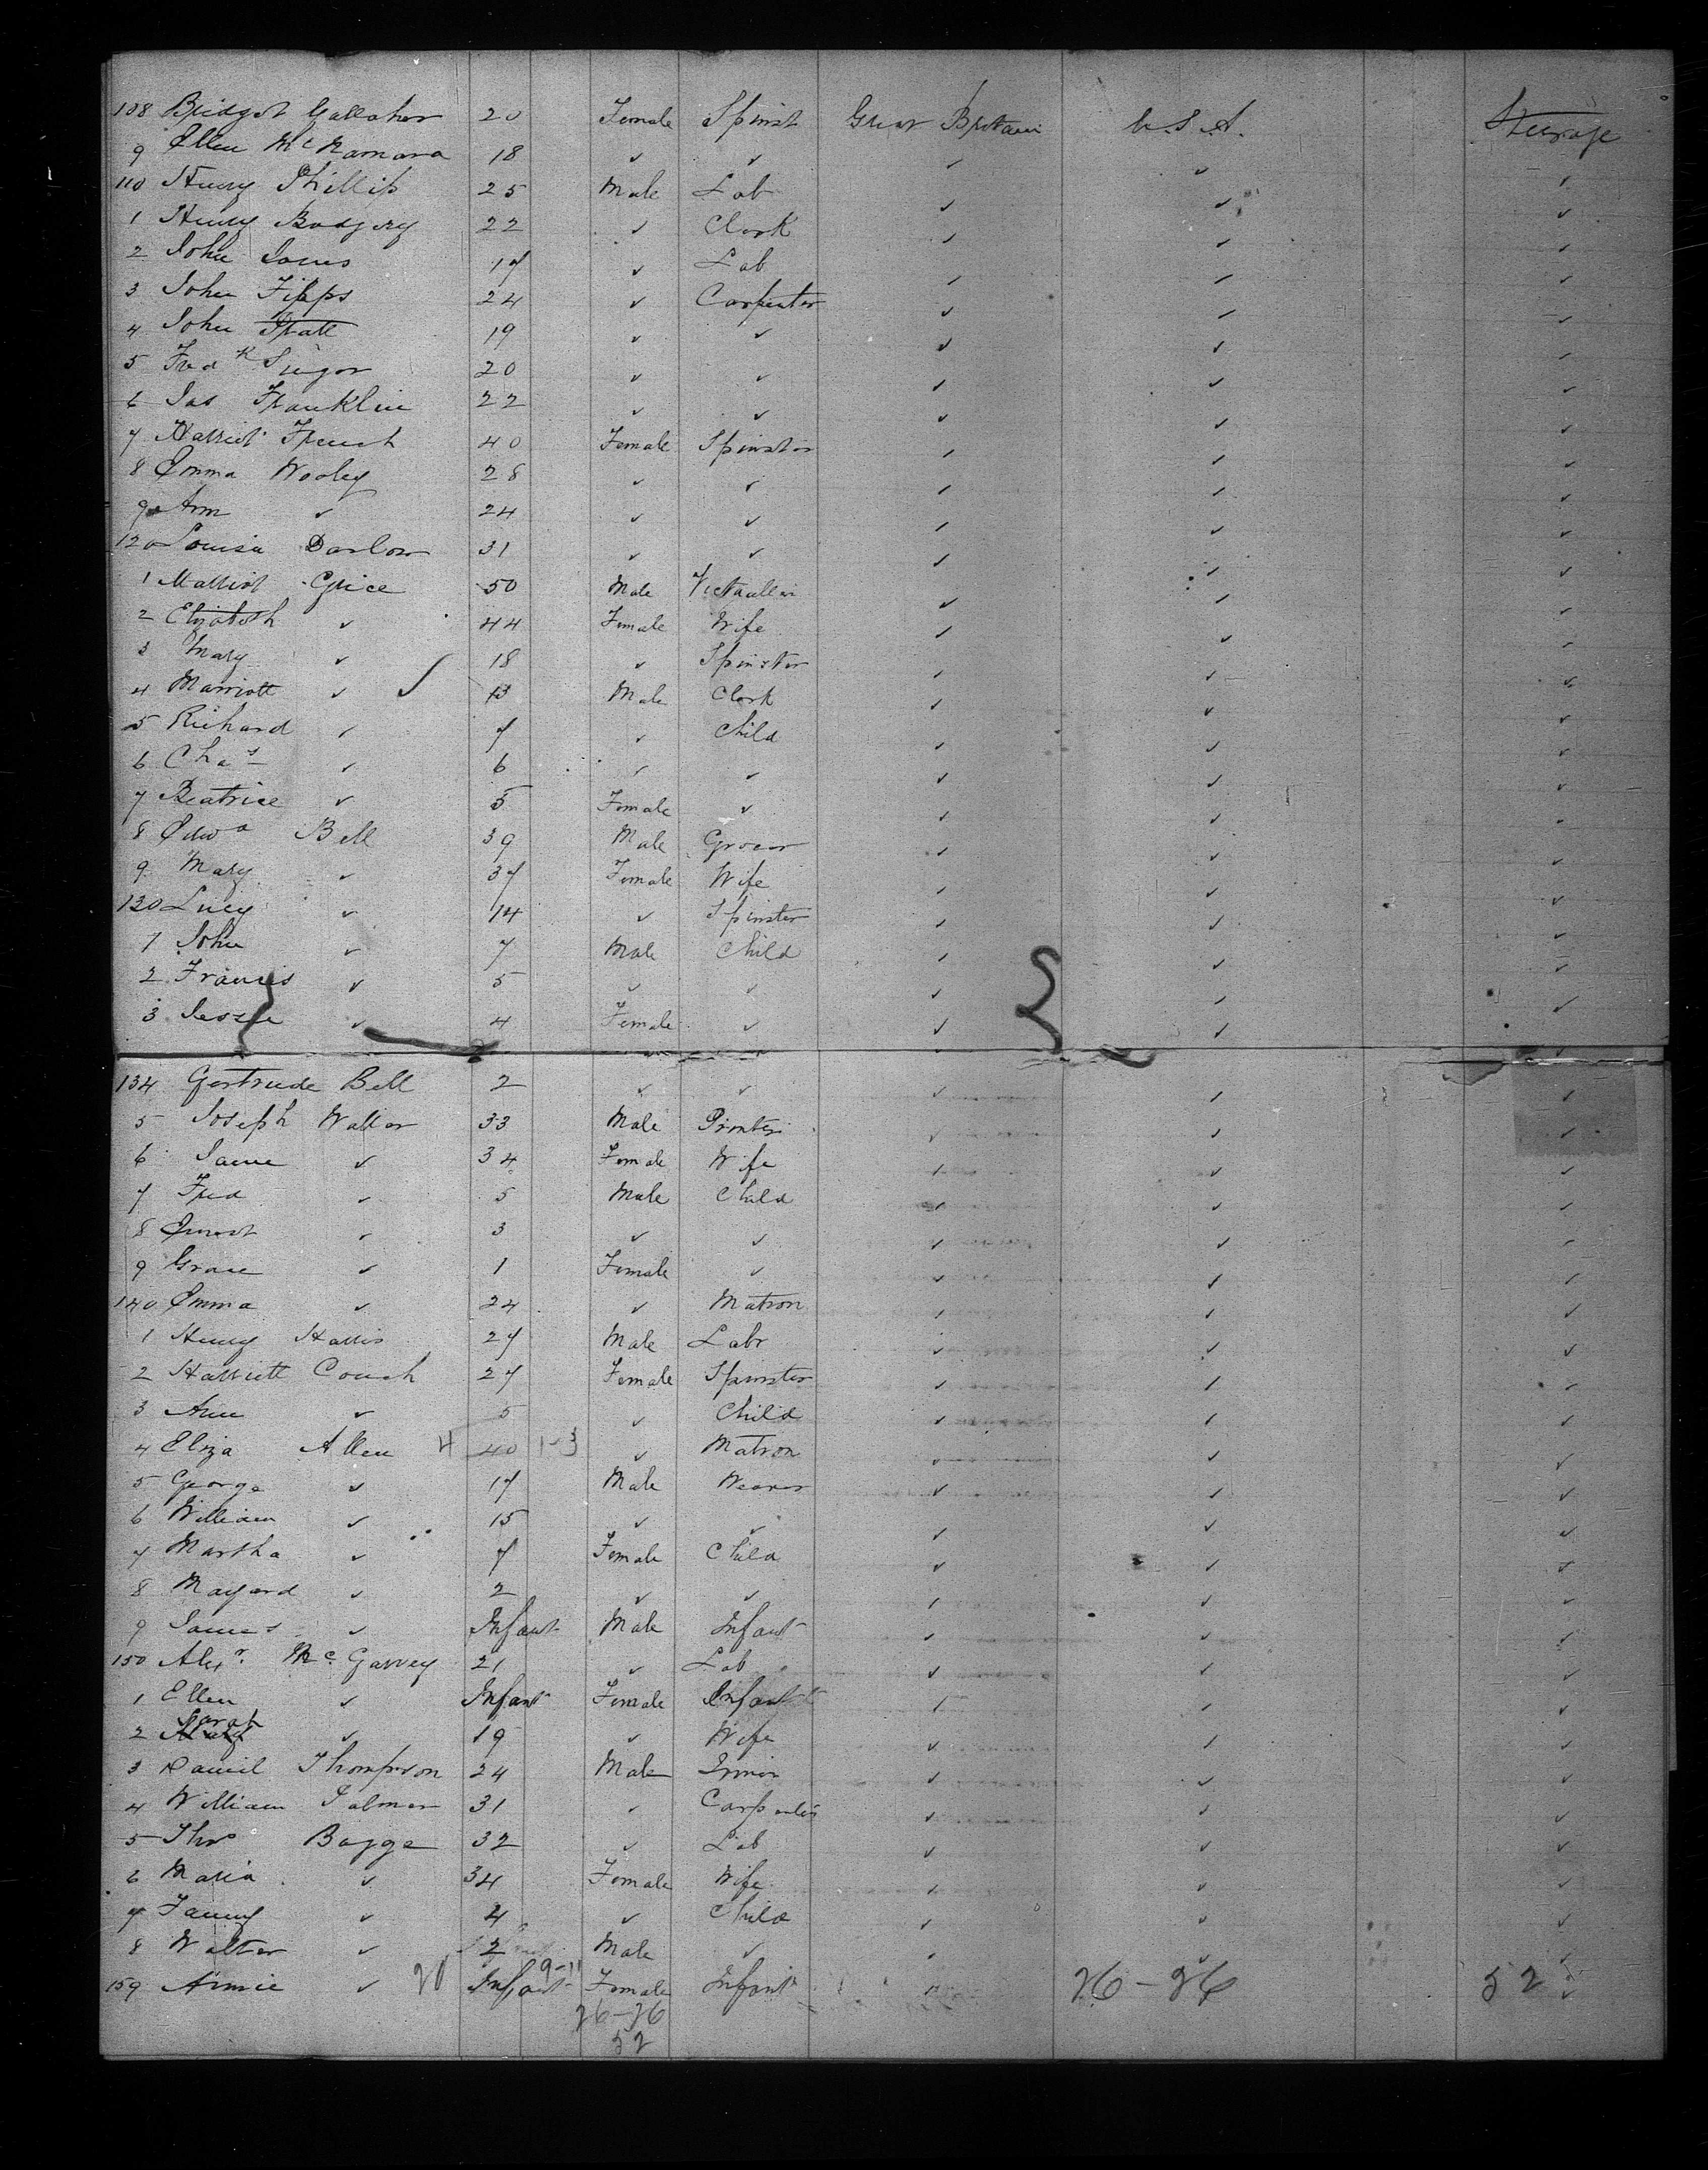 108 Bridget Gallaher 20 Female Spinst Great Britain U.S.A. Steerage
9 Ellen McNamara 18 ✓ ✓ ✓ ✓ ✓
110 Henry Phillips 25 Male Lab ✓ ✓ ✓
1 Henry Badgery 22 ✓ Clerk ✓ ✓ ✓
2 John Jones 17 ✓ Lab ✓ ✓ ✓
3 John Fipps 24 ✓ Carpenter ✓ ✓ ✓
4 John Pratt 19 ✓ ✓ ✓ ✓ ✓
5 Fredk Singer 20 ✓ ✓ ✓ ✓ ✓
6 Jas Franklin 22 ✓ ✓ ✓ ✓ ✓
7 Harriet French 40 Female Spinster ✓ ✓ ✓
8 Emma Wooley 28 ✓ ✓ ✓ ✓ ✓
9 Ann ✓ 24 ✓ ✓ ✓ ✓ ✓
120 Louisa Darlow 31 ✓ ✓ ✓ ✓ ✓
1 Marriot Grice 50 Male Victualler ✓ ✓ ✓
2 Elizabeth ✓ 44 Female Wife ✓ ✓ ✓
3 Mary ✓ 18 ✓ Spinster ✓ ✓ ✓
4 Marriott ✓ 13 Male Clerk ✓ ✓ ✓
5 Richard ✓ 7 ✓ Child ✓ ✓ ✓
6 Chas ✓ 6 ✓ ✓ ✓ ✓ ✓
7 Beatrice ✓ 5 Female ✓ ✓ ✓ ✓
8 Edwd Bell 39 Male Grocer ✓ ✓ ✓
9 Mary ✓ 37 Female Wife ✓ ✓ ✓
130 Lucy ✓ 14 ✓ Spinster ✓ ✓ ✓
1 John ✓ 7 Male Child ✓ ✓ ✓
2 Francis ✓ 5 ✓ ✓ ✓ ✓ ✓
3 Jessie ✓ 4 Female ✓ ✓ ✓
134 Gertrude Bell 2 ✓ ✓ ✓ ✓ ✓
5 Joseph Walter 33 Male Printer ✓ ✓ ✓
6 Jane ✓ 34 Female Wife ✓ ✓ ✓
7 Fred ✓ 5 Male Child ✓ ✓ ✓
8 Ernest ✓ 3 ✓ ✓ ✓ ✓ ✓
9 Grace ✓ 1 Female ✓ ✓ ✓ ✓
140 Emma ✓ 24 ✓ Matron ✓ ✓ ✓
1 Henry Harris 27 Male Labr ✓ ✓ ✓
2 Harriett Couch 27 Female Spinster ✓ ✓ ✓
3 Ann ✓ 5 ✓ Child ✓ ✓ ✓
4 Eliza Allen 4 40 1-3 ✓ Matron ✓ ✓ ✓
5 George ✓ 17 Male Weaver ✓ ✓ ✓
6 William ✓ 15 ✓ ✓ ✓ ✓ ✓
7 Martha ✓ 7 Female Child ✓ ✓ ✓
8 ✓ 2 ✓ ✓ ✓ ✓ ✓
9 James ✓ Infant Male Infant ✓ ✓ ✓
150 Alexr McGarvey 21 ✓ Lab ✓ ✓ ✓
1 Ellen ✓ Infant Female Infant ✓ ✓ ✓
2 Sarah ✓ 19 ✓ Wife ✓ ✓ ✓
3 Daniel Thompson 24 Male ✓ ✓ ✓
4 William Palmer 31 ✓ Carpenter ✓ ✓ ✓
5 Thos Bagge 32 ✓ Lab ✓ ✓ ✓
6 Maria ✓ 34 Female Wife ✓ ✓ ✓
7 Fanny ✓ 4 ✓ Child ✓ ✓ ✓
8 Walter ✓ 2 Male ✓ ✓ ✓ ✓
159 Annie ✓ 20 Infant 9-11 Female Infant ✓ 26-26 52 ✓
26-26
52